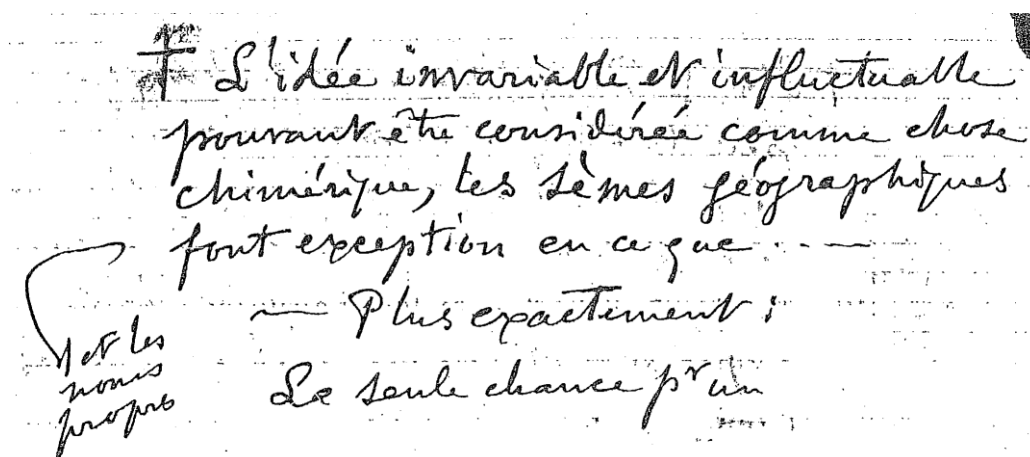 L'idée invariable et influctuable
pouvant être considérée comme chose
chimérique, les sèmes géographiques
font exception en ce que . . —
— Plus exactement :
La seule chance pr un
et les
noms
propres